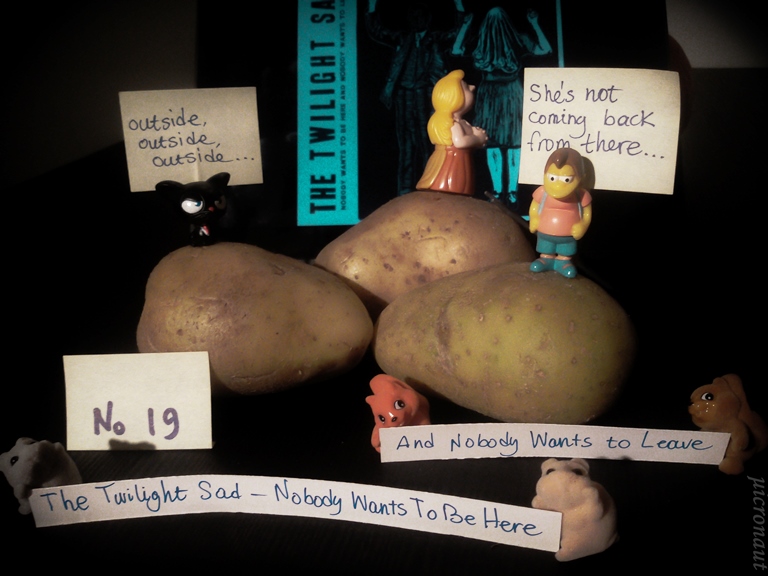 THE TWILIGHT SA
NOBODY WANTS TO BE HERE AND NOBODY WANTS TO LE
outside,
outside,
outside...
She's not
coming back
from there...
No 19
And Nobody Wants to Leave
The Twilight Sad – Nobody Wants To Be Here
micronaut